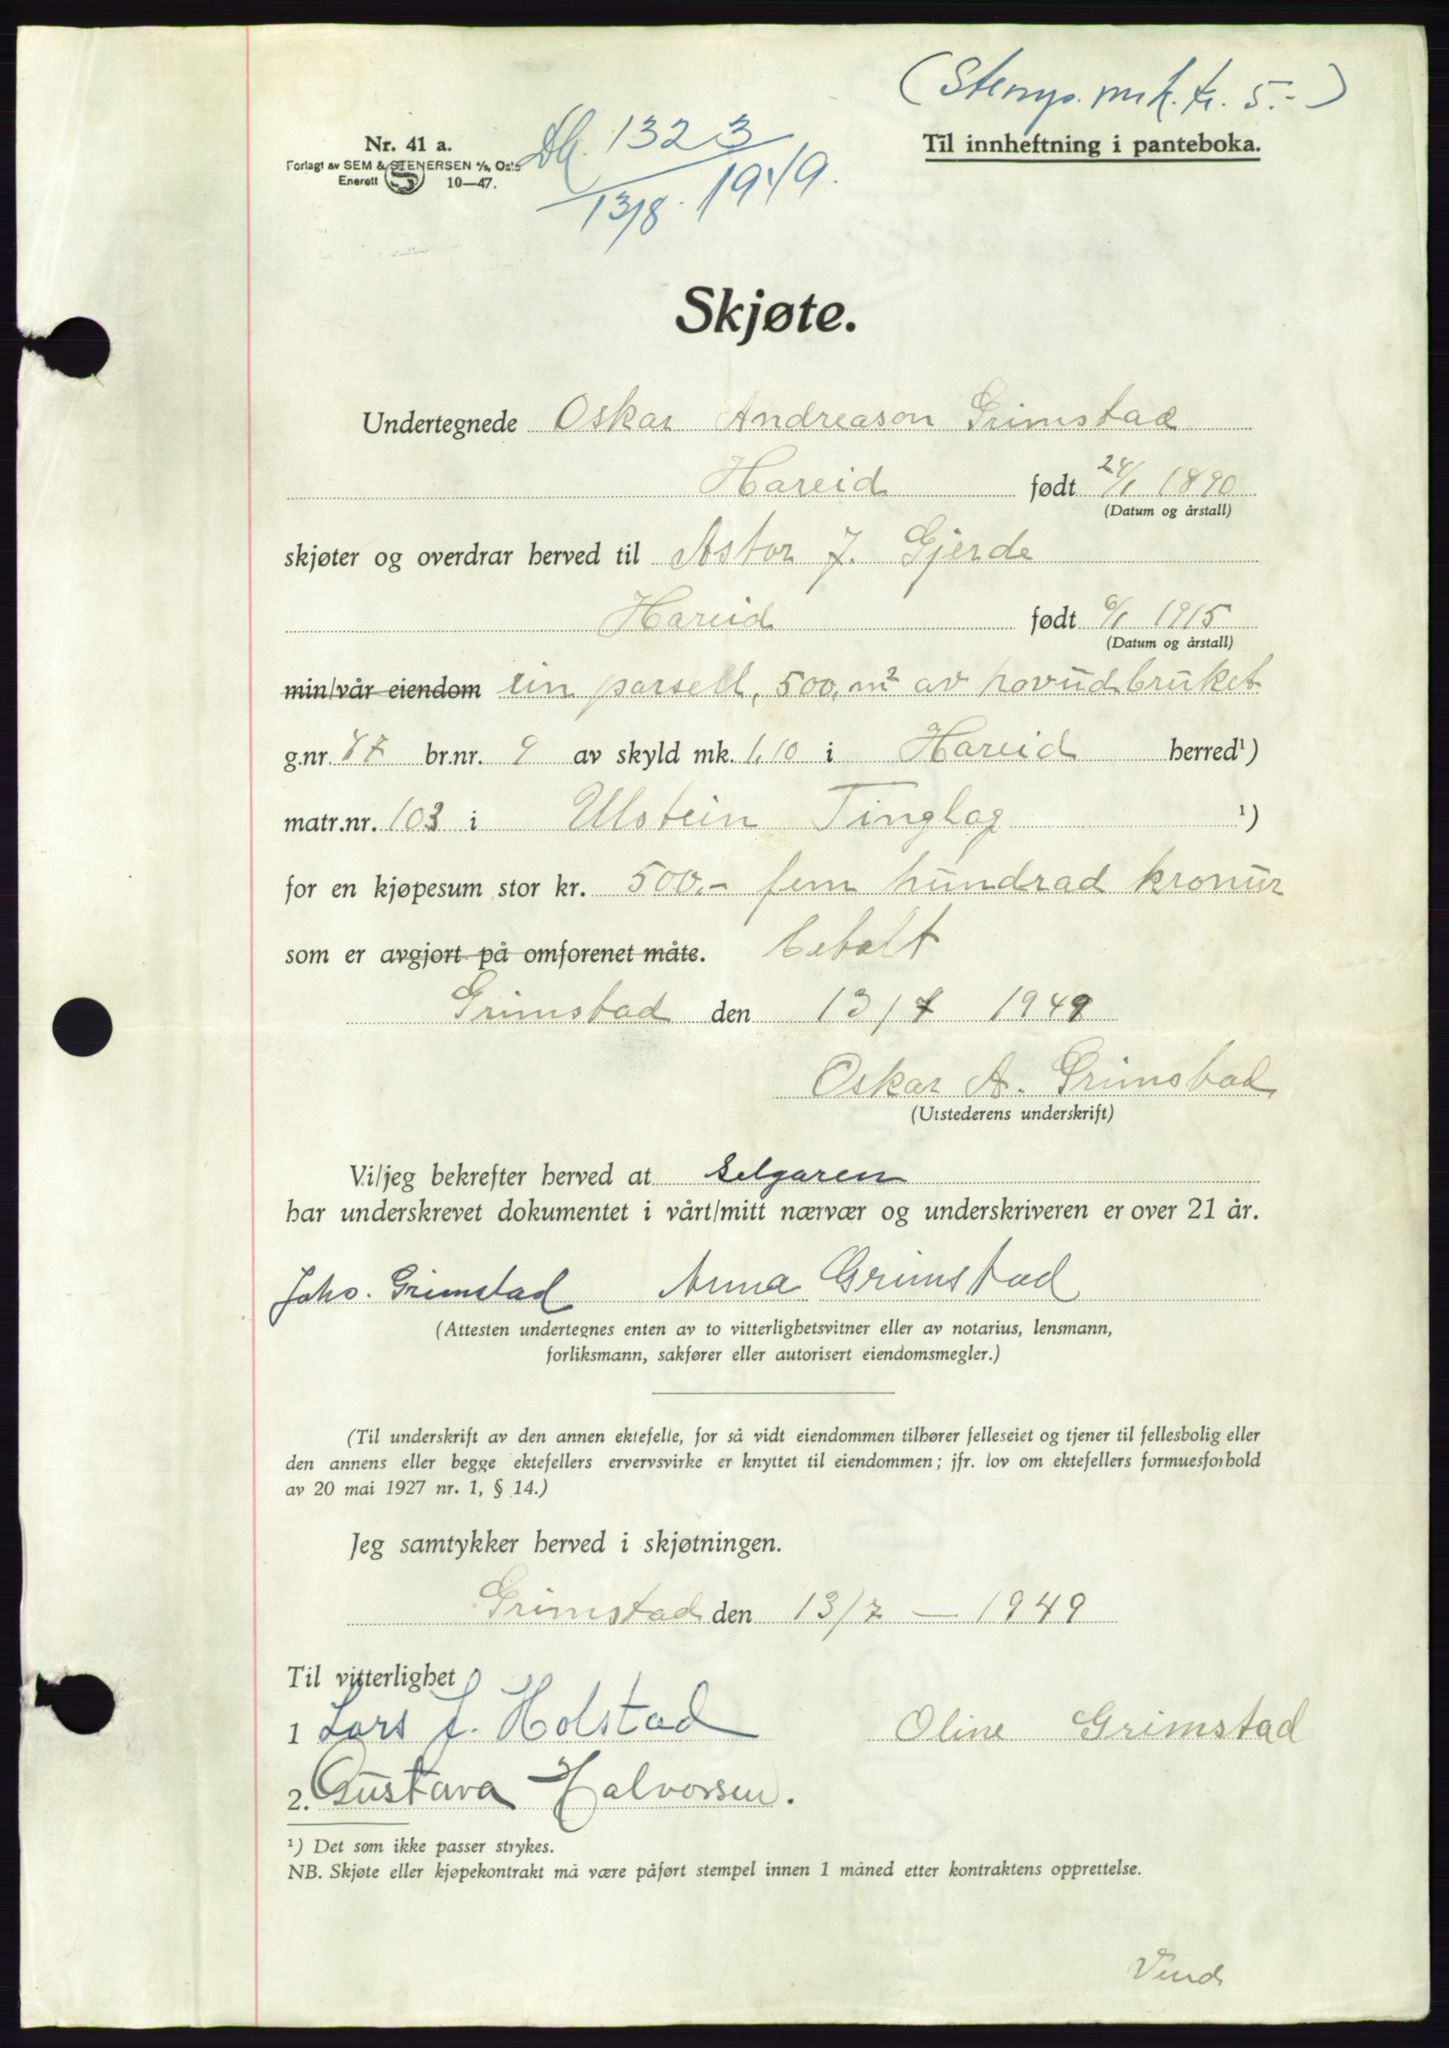 (Stemp. mrk. kr. 5.-)
Nr. 41 a.
Forlagt av SEM & STENERSEN A/S, Oslo
Enerett 10—47.
Db. 1323
13/8. 1949.
Til innheftning i panteboka.
Skjøte.
Undertegnede Oskar Andreason Grimstad
Hareid født 24/1 1890
(Datum og årstall)
skjøter og overdrar herved til Astor J. Gjerde
Hareid født 6/1 1915
(Datum og årstall)
min/vår eiendom ein parsell, 500, m² av hovudbruket
g.nr. 47 br.nr. 9 av skyld mk. 1,10 i Hareid herred¹)
matr.nr. 103 i Ulstein Tinglag ¹)
for en kjøpesum stor kr. 500.- fem hundrad kronur
som er avgjort på omforenet måte. betalt
Grimstad den 13/7 1949
Oskar A. Grimstad
(Utstederens underskrift)
Vi/jeg bekrefter herved at selgaren
har underskrevet dokumentet i vårt/mitt nærvær og underskriveren er over 21 år.
Johs. Grimstad Anna Grimstad
(Attesten undertegnes enten av to vitterlighetsvitner eller av notarius, lensmann,
forliksmann, sakfører eller autorisert eiendomsmegler.)
(Til underskrift av den annen ektefelle, for så vidt eiendommen tilhører felleseiet og tjener til fellesbolig eller
den annens eller begge ektefellers ervervsvirke er knyttet til eiendommen; jfr. lov om ektefellers formuesforhold
av 20 mai 1927 nr. 1, § 14.)
Jeg samtykker herved i skjøtningen.
Grimstad den 13/7 — 1949
Til vitterlighet
1 Lars J. Holstad Oline Grimstad
2. Gustava Halvorsen.
¹) Det som ikke passer strykes.
NB. Skjøte eller kjøpekontrakt må være påført stempel innen 1 måned etter kontraktens opprettelse.
Vend